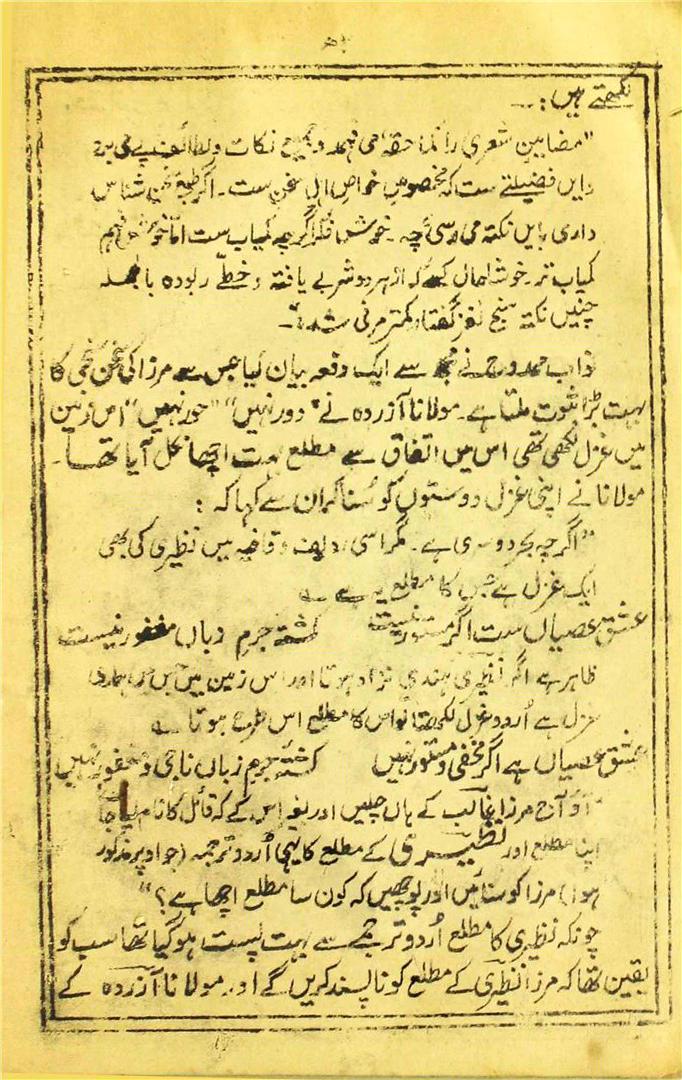 لکھتے ہیں :۔
"مضامینِ شعری را کما حقہٗ می فہمد و بجمیع نکات و لطائف پے می برد
و ایں فضیلتے ست کہ مخصوصِ خواصِ اہلِ سخن ست۔ اگر طبعِ سخن شناس
داری بایں نکتہ می رسی چہ۔ خوش فکر اگرچہ کمیاب ست اما خوش فہم
کمیاب تر۔ خوشا حال کسے کہ از ہر دو شربے یافتہ و حظے ربودہ بالجملہ
چنیں نکتہ سنج نغز گفتار کمتر مرئی شدہ"۔
نواب ممدوح نے مجھ سے ایک دفعہ بیان کیا جس سے مرزا کی سخن سنجی کا
بہت بڑا ثبوت ملتا ہے۔ مولانا آزردہ نے "دور نہیں" "حور نہیں" اس زمین
میں غزل لکھی تھی اس میں اتفاق سے مطلع بہت اچھا نکل آیا تھا۔
مولانا نے اپنی غزل دوستوں کو سُنا کر ان سے کہا کہ :
"اگرچہ بحر دوسری ہے۔ مگر اسی ردیف و قافیہ میں نظیری کی بھی
ایک غزل ہے جس کا مطلع یہ ہے ؎
عشق عصیاں ست اگر مستور نیست کشتۂ جرمِ زباں مغفور نیست
ظاہر ہے اگر نظیری ہندی نژاد ہوتا اور اس زمین میں جس میں ہماری
غزل ہے اُردو غزل لکھتا تو اس کا مطلع اس طرح ہوتا ؎
عشق عصیاں ہے اگر مخفی و مستور نہیں کشتۂ جرمِ زباں ناجی و مغفور نہیں
آؤ آج مرزا غالب کے ہاں چلیں اور بغیر اس کے کہ قائل کا نام لیا جائے
اپنا مطلع اور نظیری کے مطلع کا یہی اُردو ترجمہ (جو اوپر مذکور
ہوا) مرزا کو سنائیں اور پوچھیں کہ کون سا مطلع اچھا ہے؟"
چونکہ نظیری کا مطلع اُردو ترجمے سے بہت پست ہو گیا تھا سب کو
یقین تھا کہ مرزا نظیری کے مطلع کو ناپسند کریں گے اور مولانا آزردہ کے